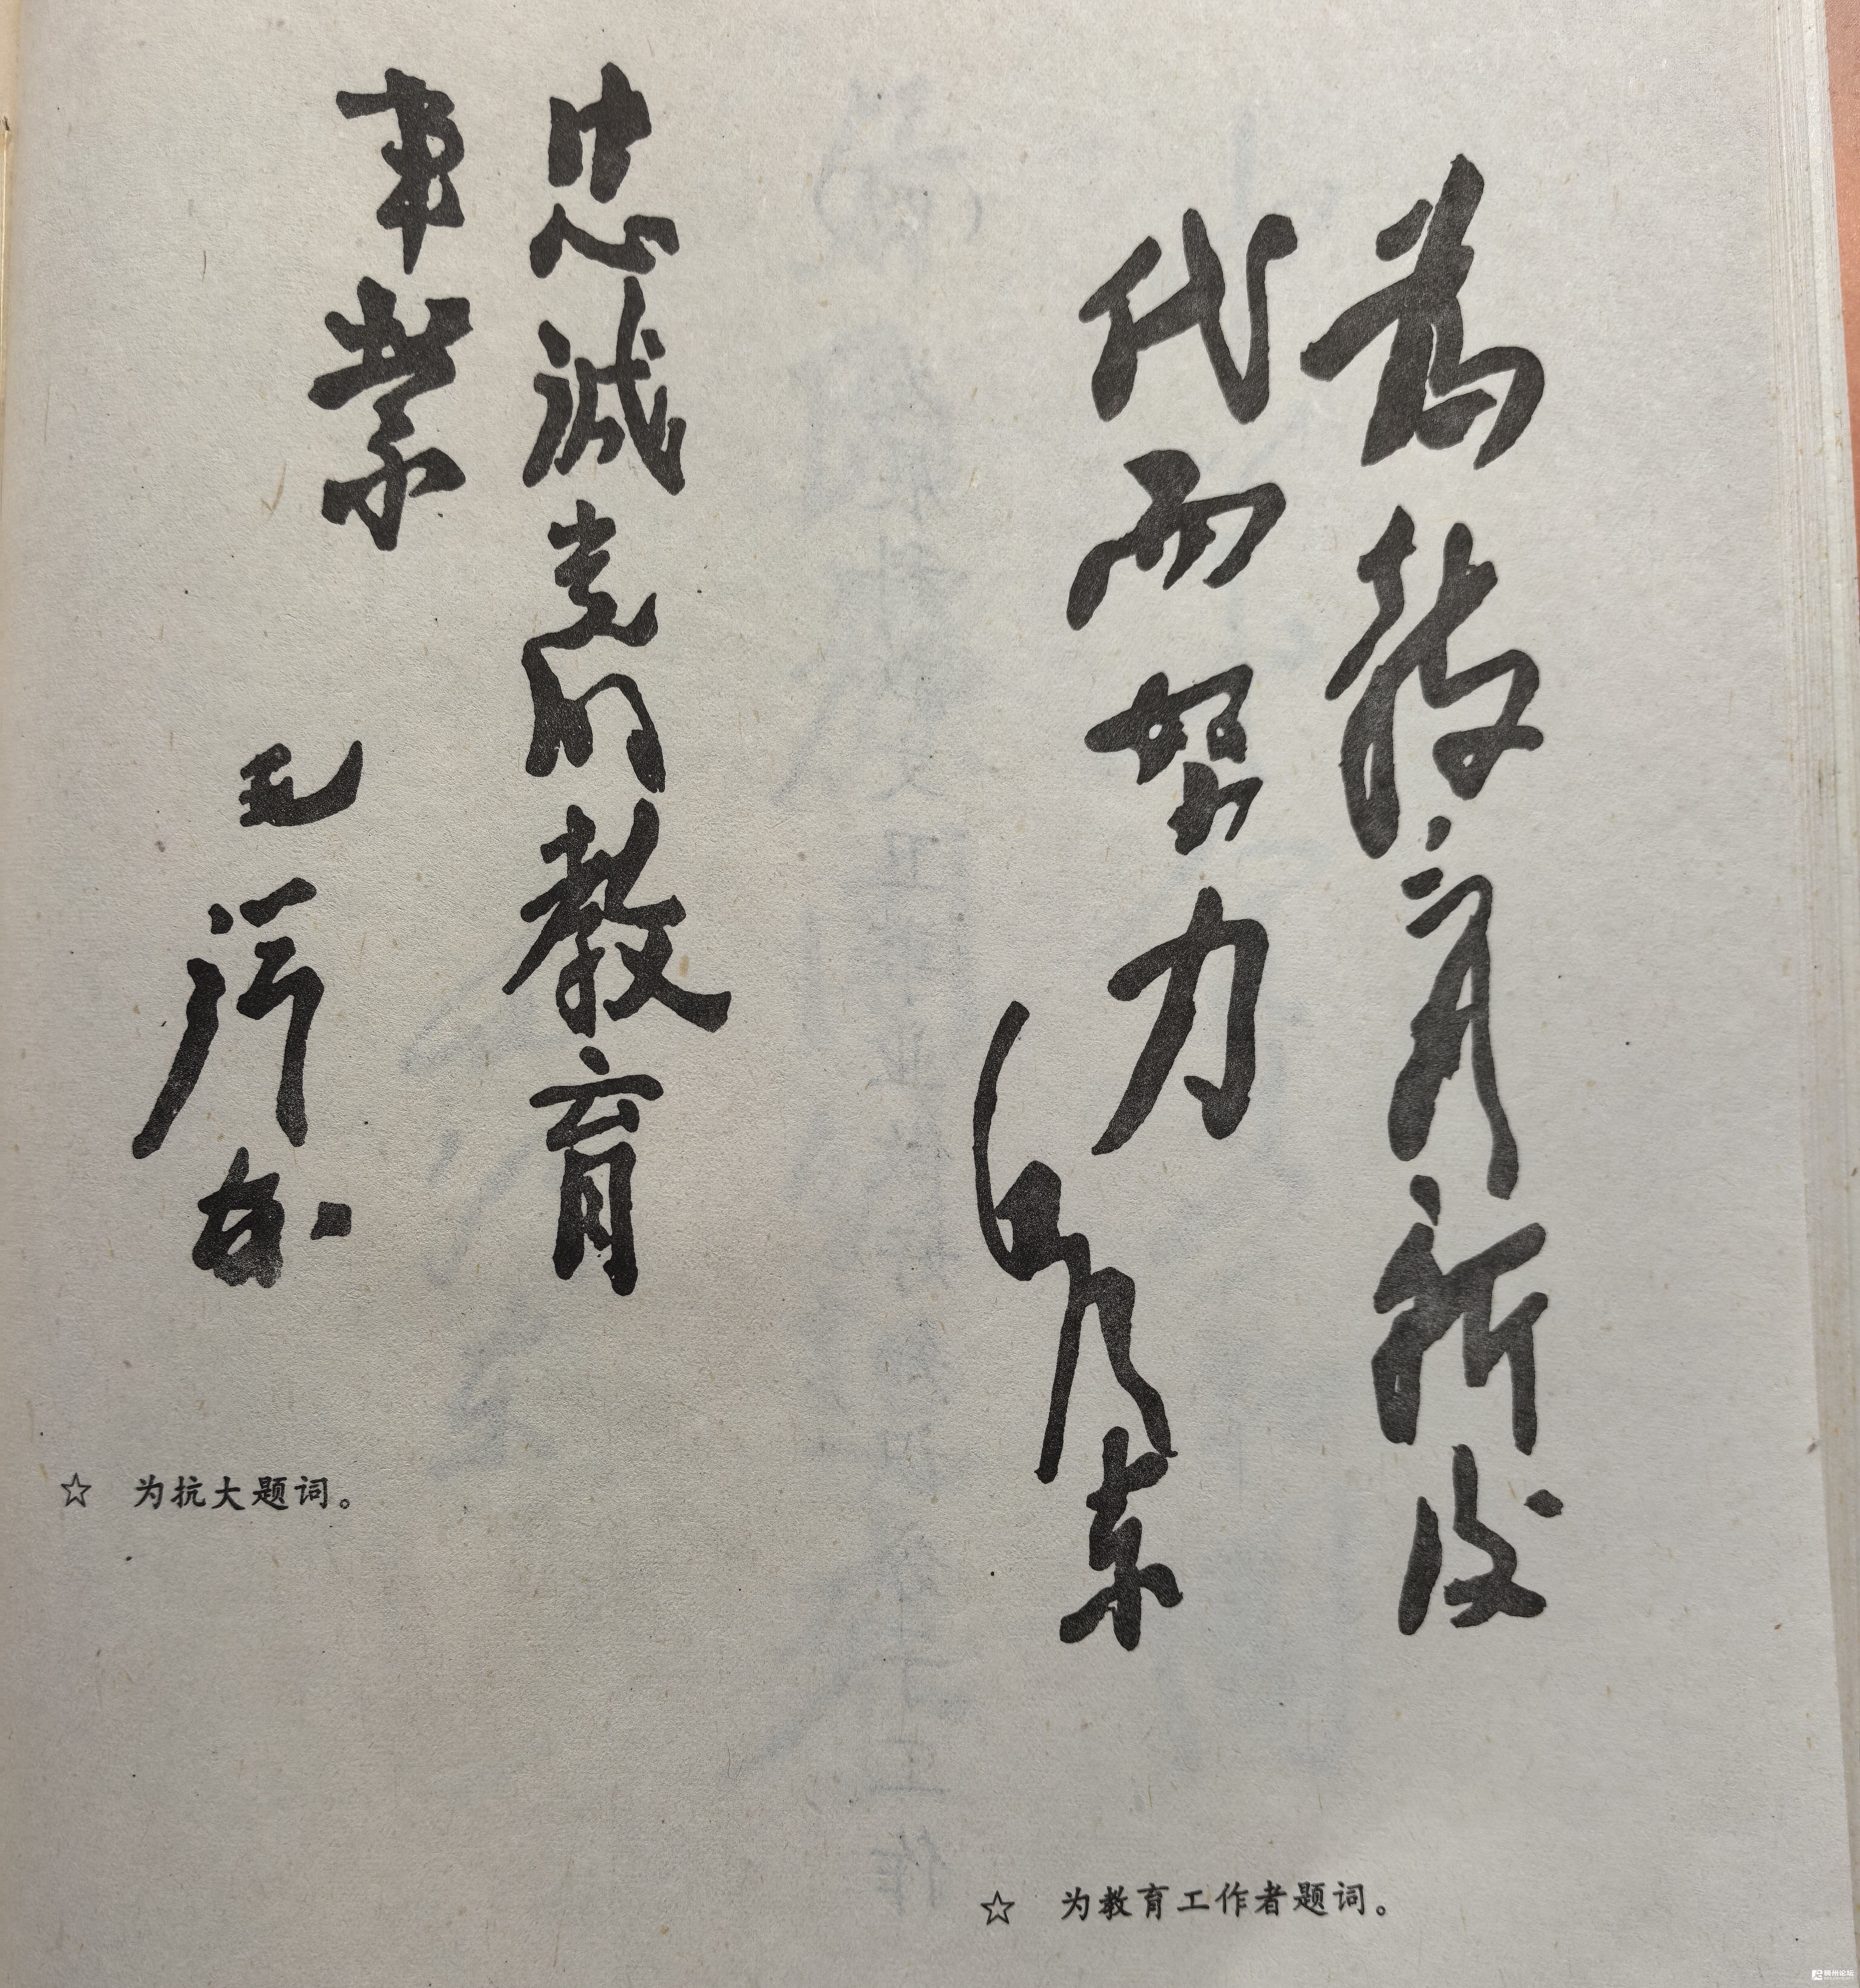 为教育新后
代而努力
毛泽东
☆ 为教育工作者题词。
忠诚党的教育
事业
毛泽东
☆ 为抗大题词。